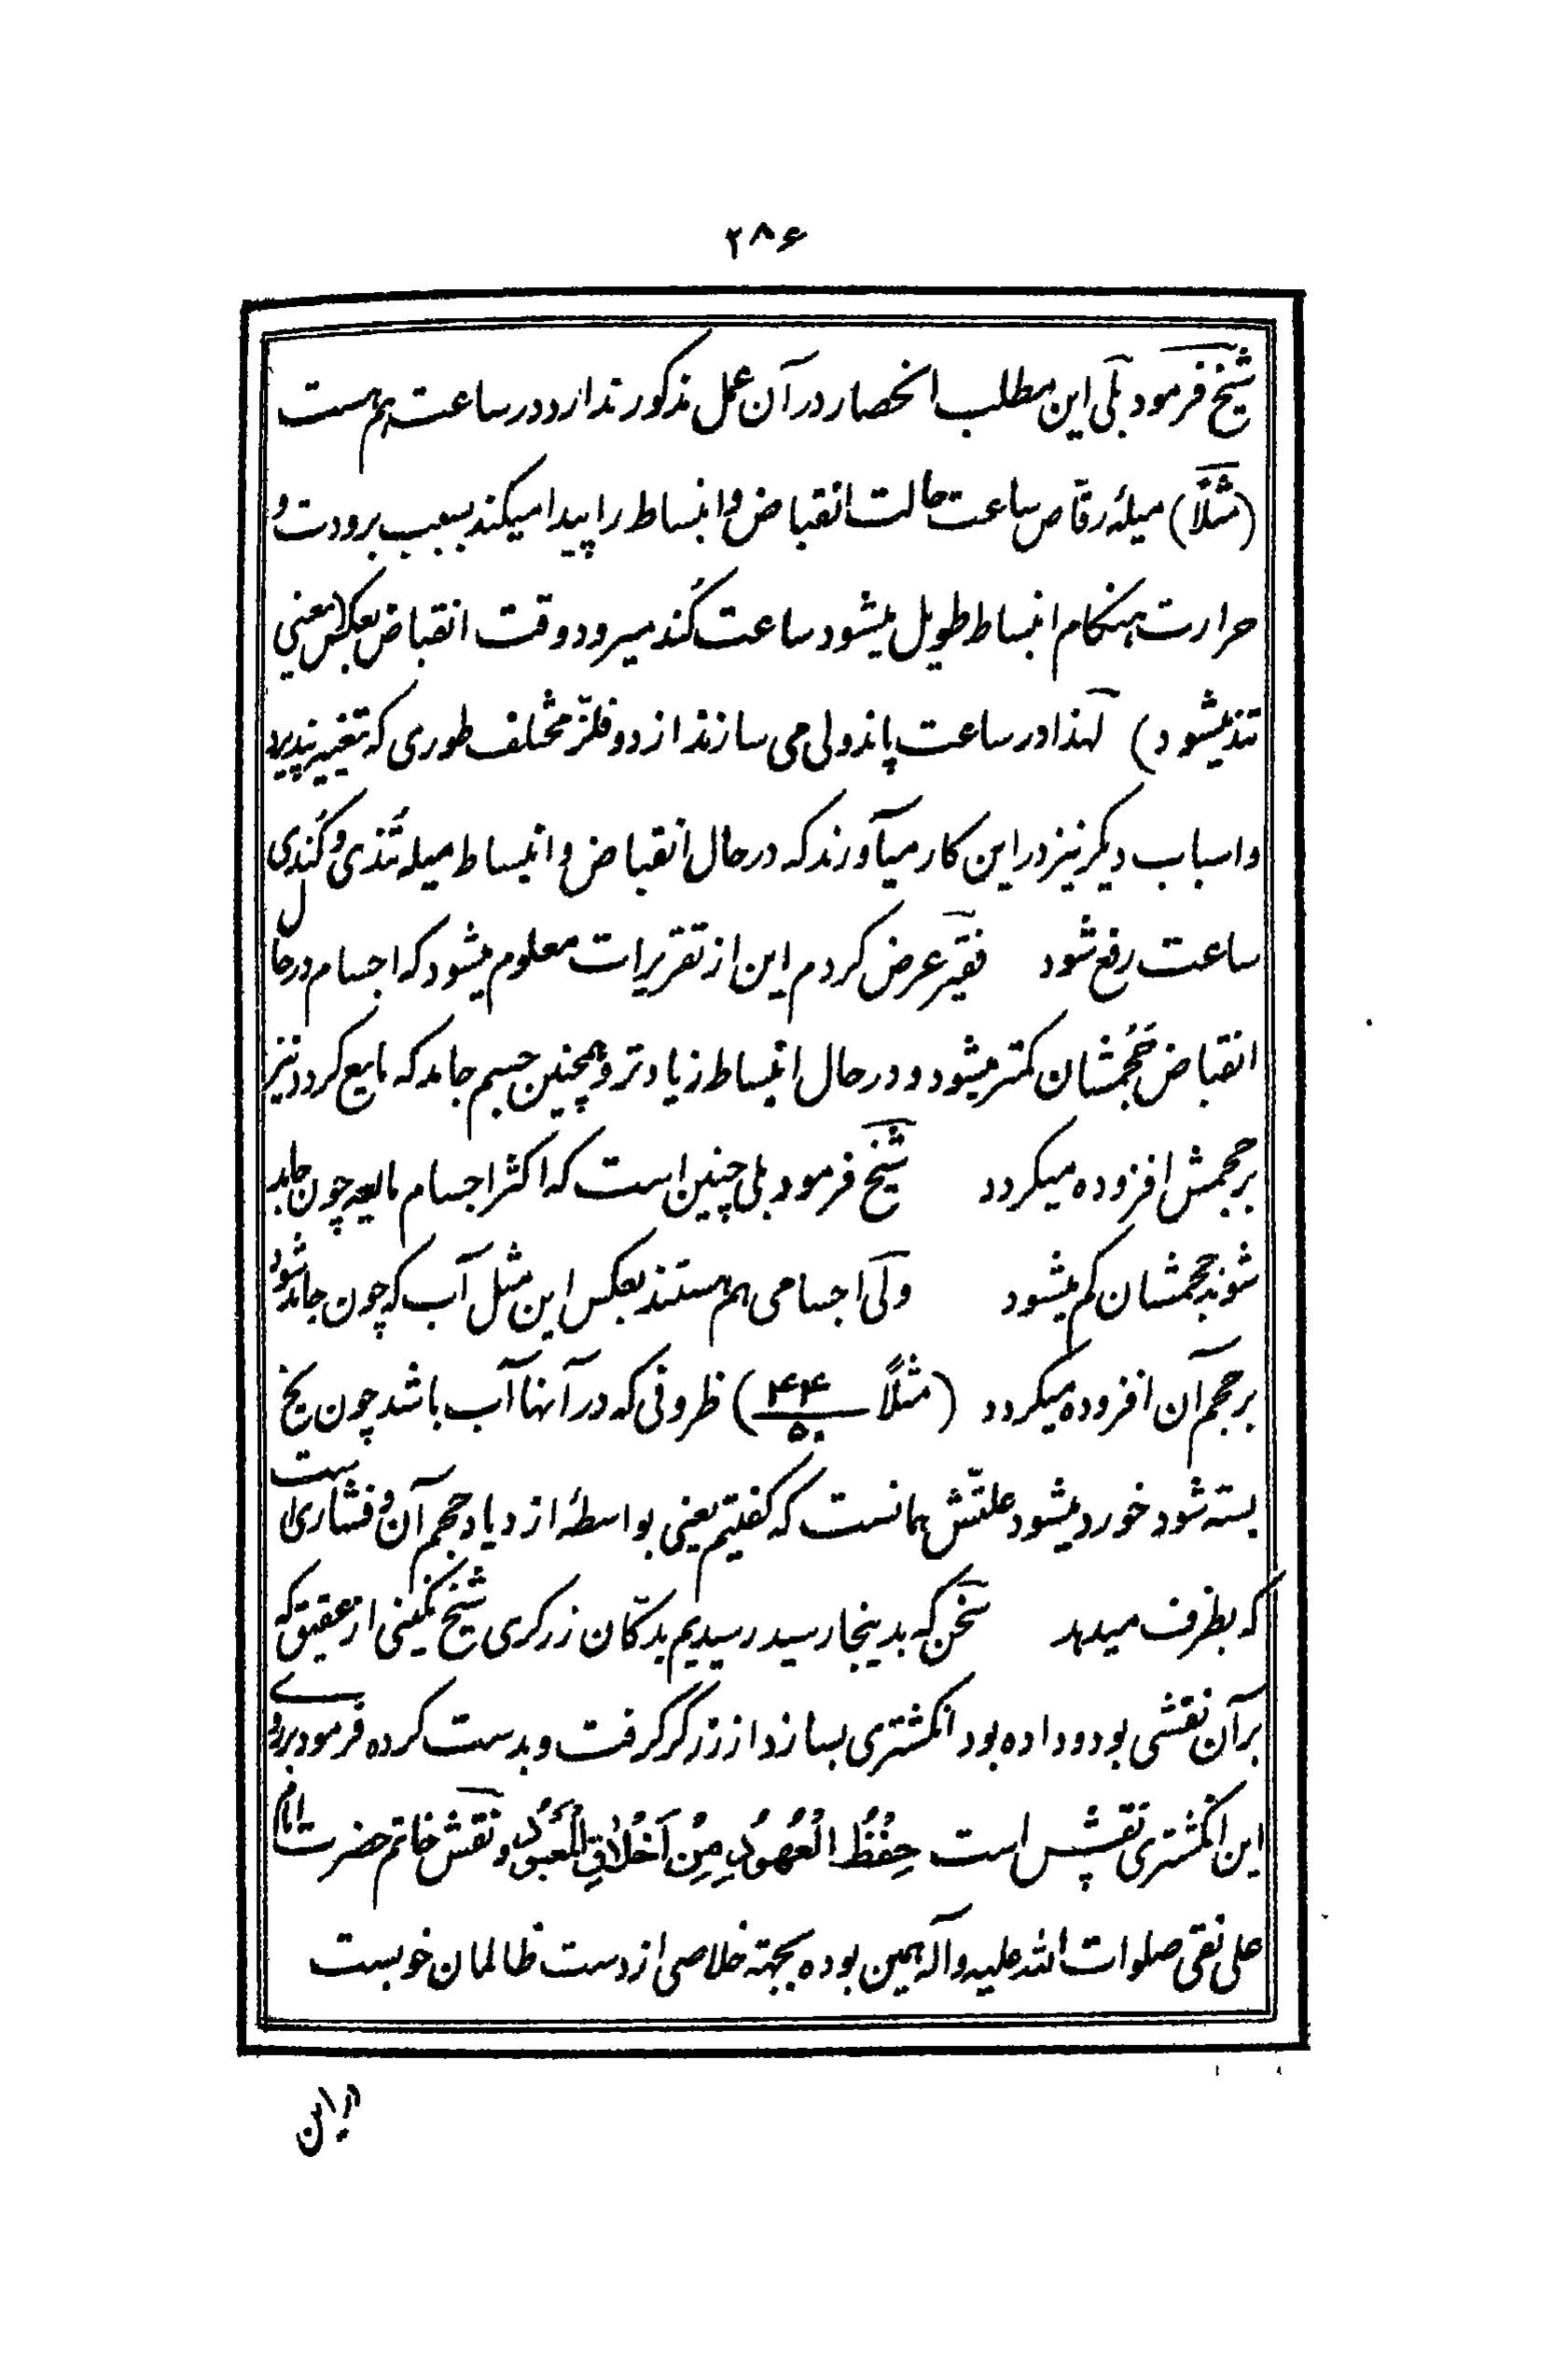 ۲۸۶
شیخ فرمود بلی این مطلب انحصار در آن عمل مذکور ندارد در ساعت هم هست
(مثلاً) میلهٔ رقّاص ساعت حالت انقباض و انبساط را پیدا میکند بسبب برودت و
حرارت هنکام انبساط طویل میشود ساعت کُند میرود و وقت انقباض بعکس (یعنی
تند میشود) لهذا در ساعت پاندولی می سازند از دو فلزّ مختلف طوری که تغییر نپذیرد
و اسباب دیکر نیز در این کار میآورند که در حال انقباض و انبساط میله تُندی و کُندی
ساعت رفع شود فقیر عرض کردم این از تقریرات معلوم میشود که اجسام در حال
انقباض حَجمشان کمتر میشود و در حال انبساط زیادتر و همچنین جسم جامد که مایع کردد نیز
بر حجمش افزوده میکردد شیخ فرمود بلی چنین است که اکثر اجسام مایعه چون جامد
شوند حجمشان کم میشود ولی اجسامی هم هستند بعکس این مثل آب که چون جامد شود
بر حجم آن افزوده میکردد (مثلاً ۴۴ ۵۰) ظروفی که در آنها آب باشد چون یخ
بسته شود خورد میشود علّتش همانست که کفتیم یعنی بواسطهٔ ازدیاد حجم آن و فشاری است
که بظرف میدهد سخن که بدینجا رسید رسیدیم بدکّان زرکری شیخ نکینی از عقیق که
بر آن نقشی بود و داده بود انکشتری بسازد از زرکر کرفت و بدست کرده فرمود بر روی
این انکشتری نقش است حِفْظُ الْعُهُودِ مِنْ اَخْلٰاقِ الْمَعْبُودِ و نقش خاتم حضرت امام
علی نقی صلوات الله علیه و آله همین بوده بجهته خلاصی از دست ظالمان خوبست